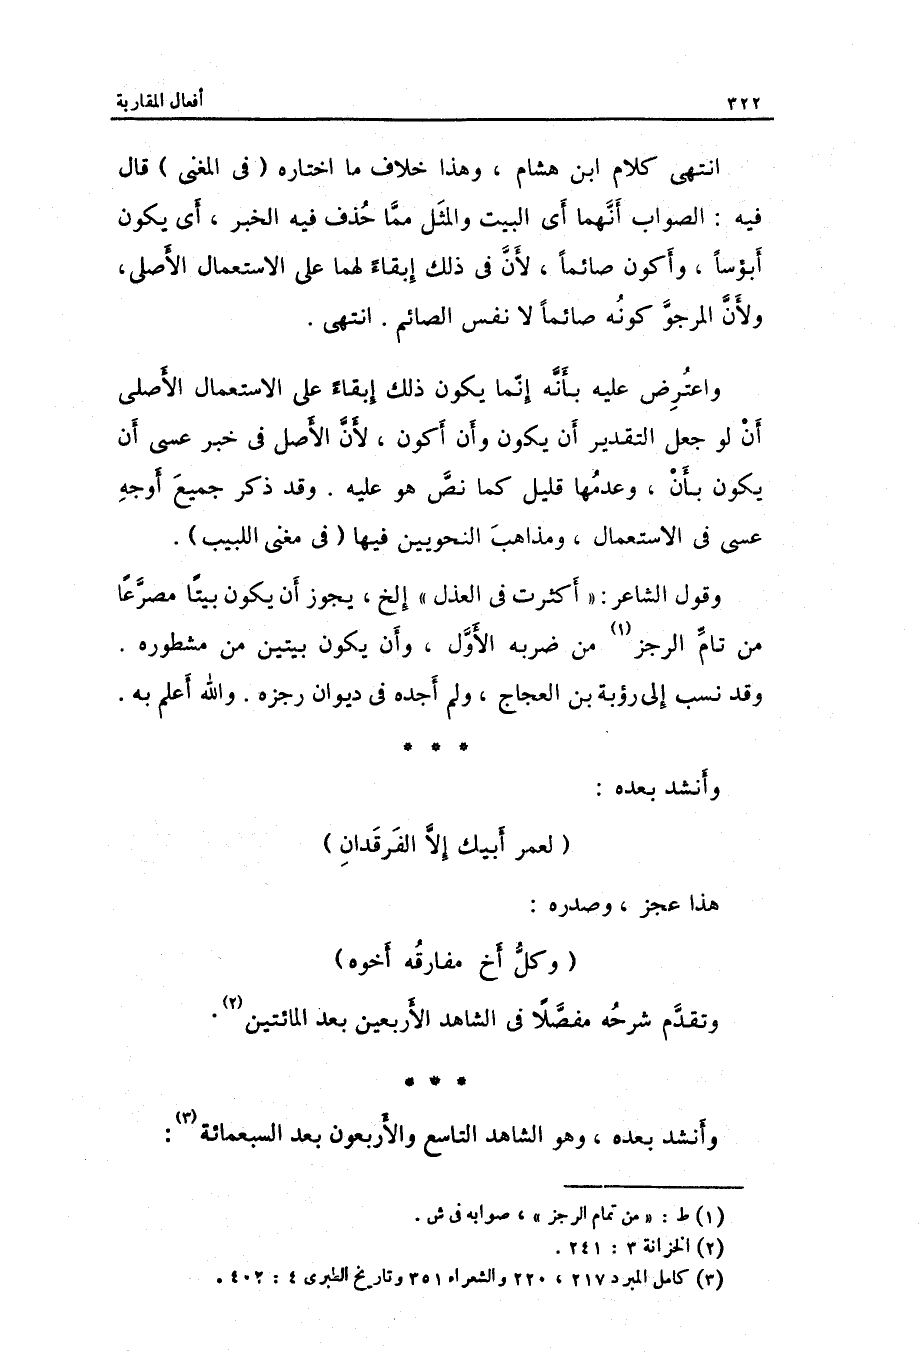 ٣٢٢ أفعال المقاربة
انتهى كلام ابن هشام ، وهذا خلاف ما اختاره ( فى المغنى ) قال
فيه : الصواب أَنَّهما أَى البيت والمثَل ممَّا حُذف فيه الخبر ، أَى يكون
أَبؤساً ، وأَكون صائماً ، لأَنَّ فى ذلك إِبقاءً لهما على الاستعمال الأَصلى،
ولأَنَّ المرجوَّ كونُه صائماً لا نفس الصائم . انتهى .
واعتُرِض عليه بأَنَّه إِنّما يكون ذلك إِبقاءً على الاستعمال الأَصلى
أَنْ لو جعل التقدير أَن يكون وأَن أَكون ، لأَنَّ الأَصل فى خبر عسى أَن
يكون بأَنْ ، وعدمُها قليل كما نصَّ هو عليه . وقد ذكر جميعَ أَوجهِ
عسى فى الاستعمال ، ومذاهبَ النحويين فيها ( فى مغنى اللبيب) .
وقول الشاعر : « أَكثرت فى العذل » إِلخ ، يجوز أَن يكون بيتًا مصرَّعًا
من تامِّ الرجز (١) من ضربه الأَوَّل ، وأَن يكون بيتين من مشطوره .
وقد نسب إِلى رؤبة بن العجاج ، ولم أَجده فى ديوان رجزه . والله أَعلم به .
* * *
وأَنشد بعده :
( لعمر أَبيك إِلاَّ الفَرقَدانِ )
هذا عجز ، وصدره :
( وكلُّ أَخ مفارقُه أَخوه )
وتقدَّم شرحُه مفصَّلًا فى الشاهد الأَربعين بعد المائتين (٢) .
* * *
وأَنشد بعده ، وهو الشاهد التاسع والأَربعون بعد السبعمائة (٣) :
(١) ط : « من تمام الرجز » ، صوابه فى ش .
(٢) الخزانة ٣ : ٢٤١ .
(٣) كامل المبرد ٢١٧ ، ٢٢٠ والشعراء ٣٥١ وتاريخ الطبرى ٤ : ٤٠٢ .